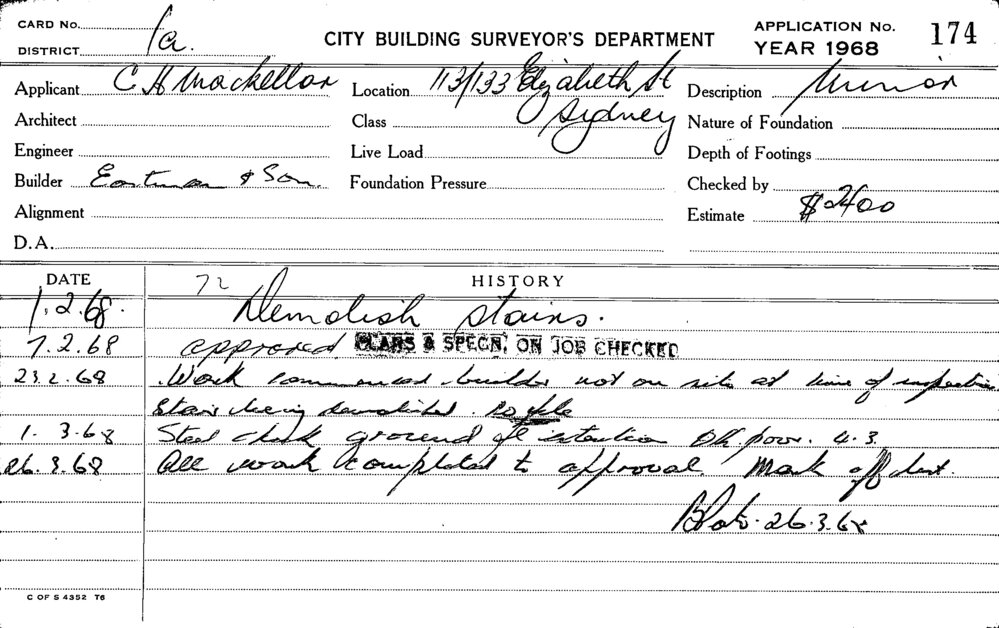 CARD No.
DISTRICT 1a.
CITY BUILDING SURVEYOR'S DEPARTMENT
APPLICATION No. 174
YEAR 1968
Applicant C H Mackellar
Location 113/133 Elizabeth St
Sydney
Description Minor
Architect
Class
Nature of Foundation
Engineer
Live Load
Depth of Footings
Builder Eastman & Son.
Foundation Pressure
Checked by
Alignment
Estimate $2400
D.A.
DATE
72
HISTORY
1.2.68. Demolish stairs.
7.2.68 approved PLANS & SPECN. ON JOB CHECKED
23.2.68 Work commenced builder not on site at time of inspection
Stairs being demolished.
1.3.68 Steel check ground fl OK 4.3
26.3.68 All work completed to approval Mark off
26.3.68
C OF S 4352 T6